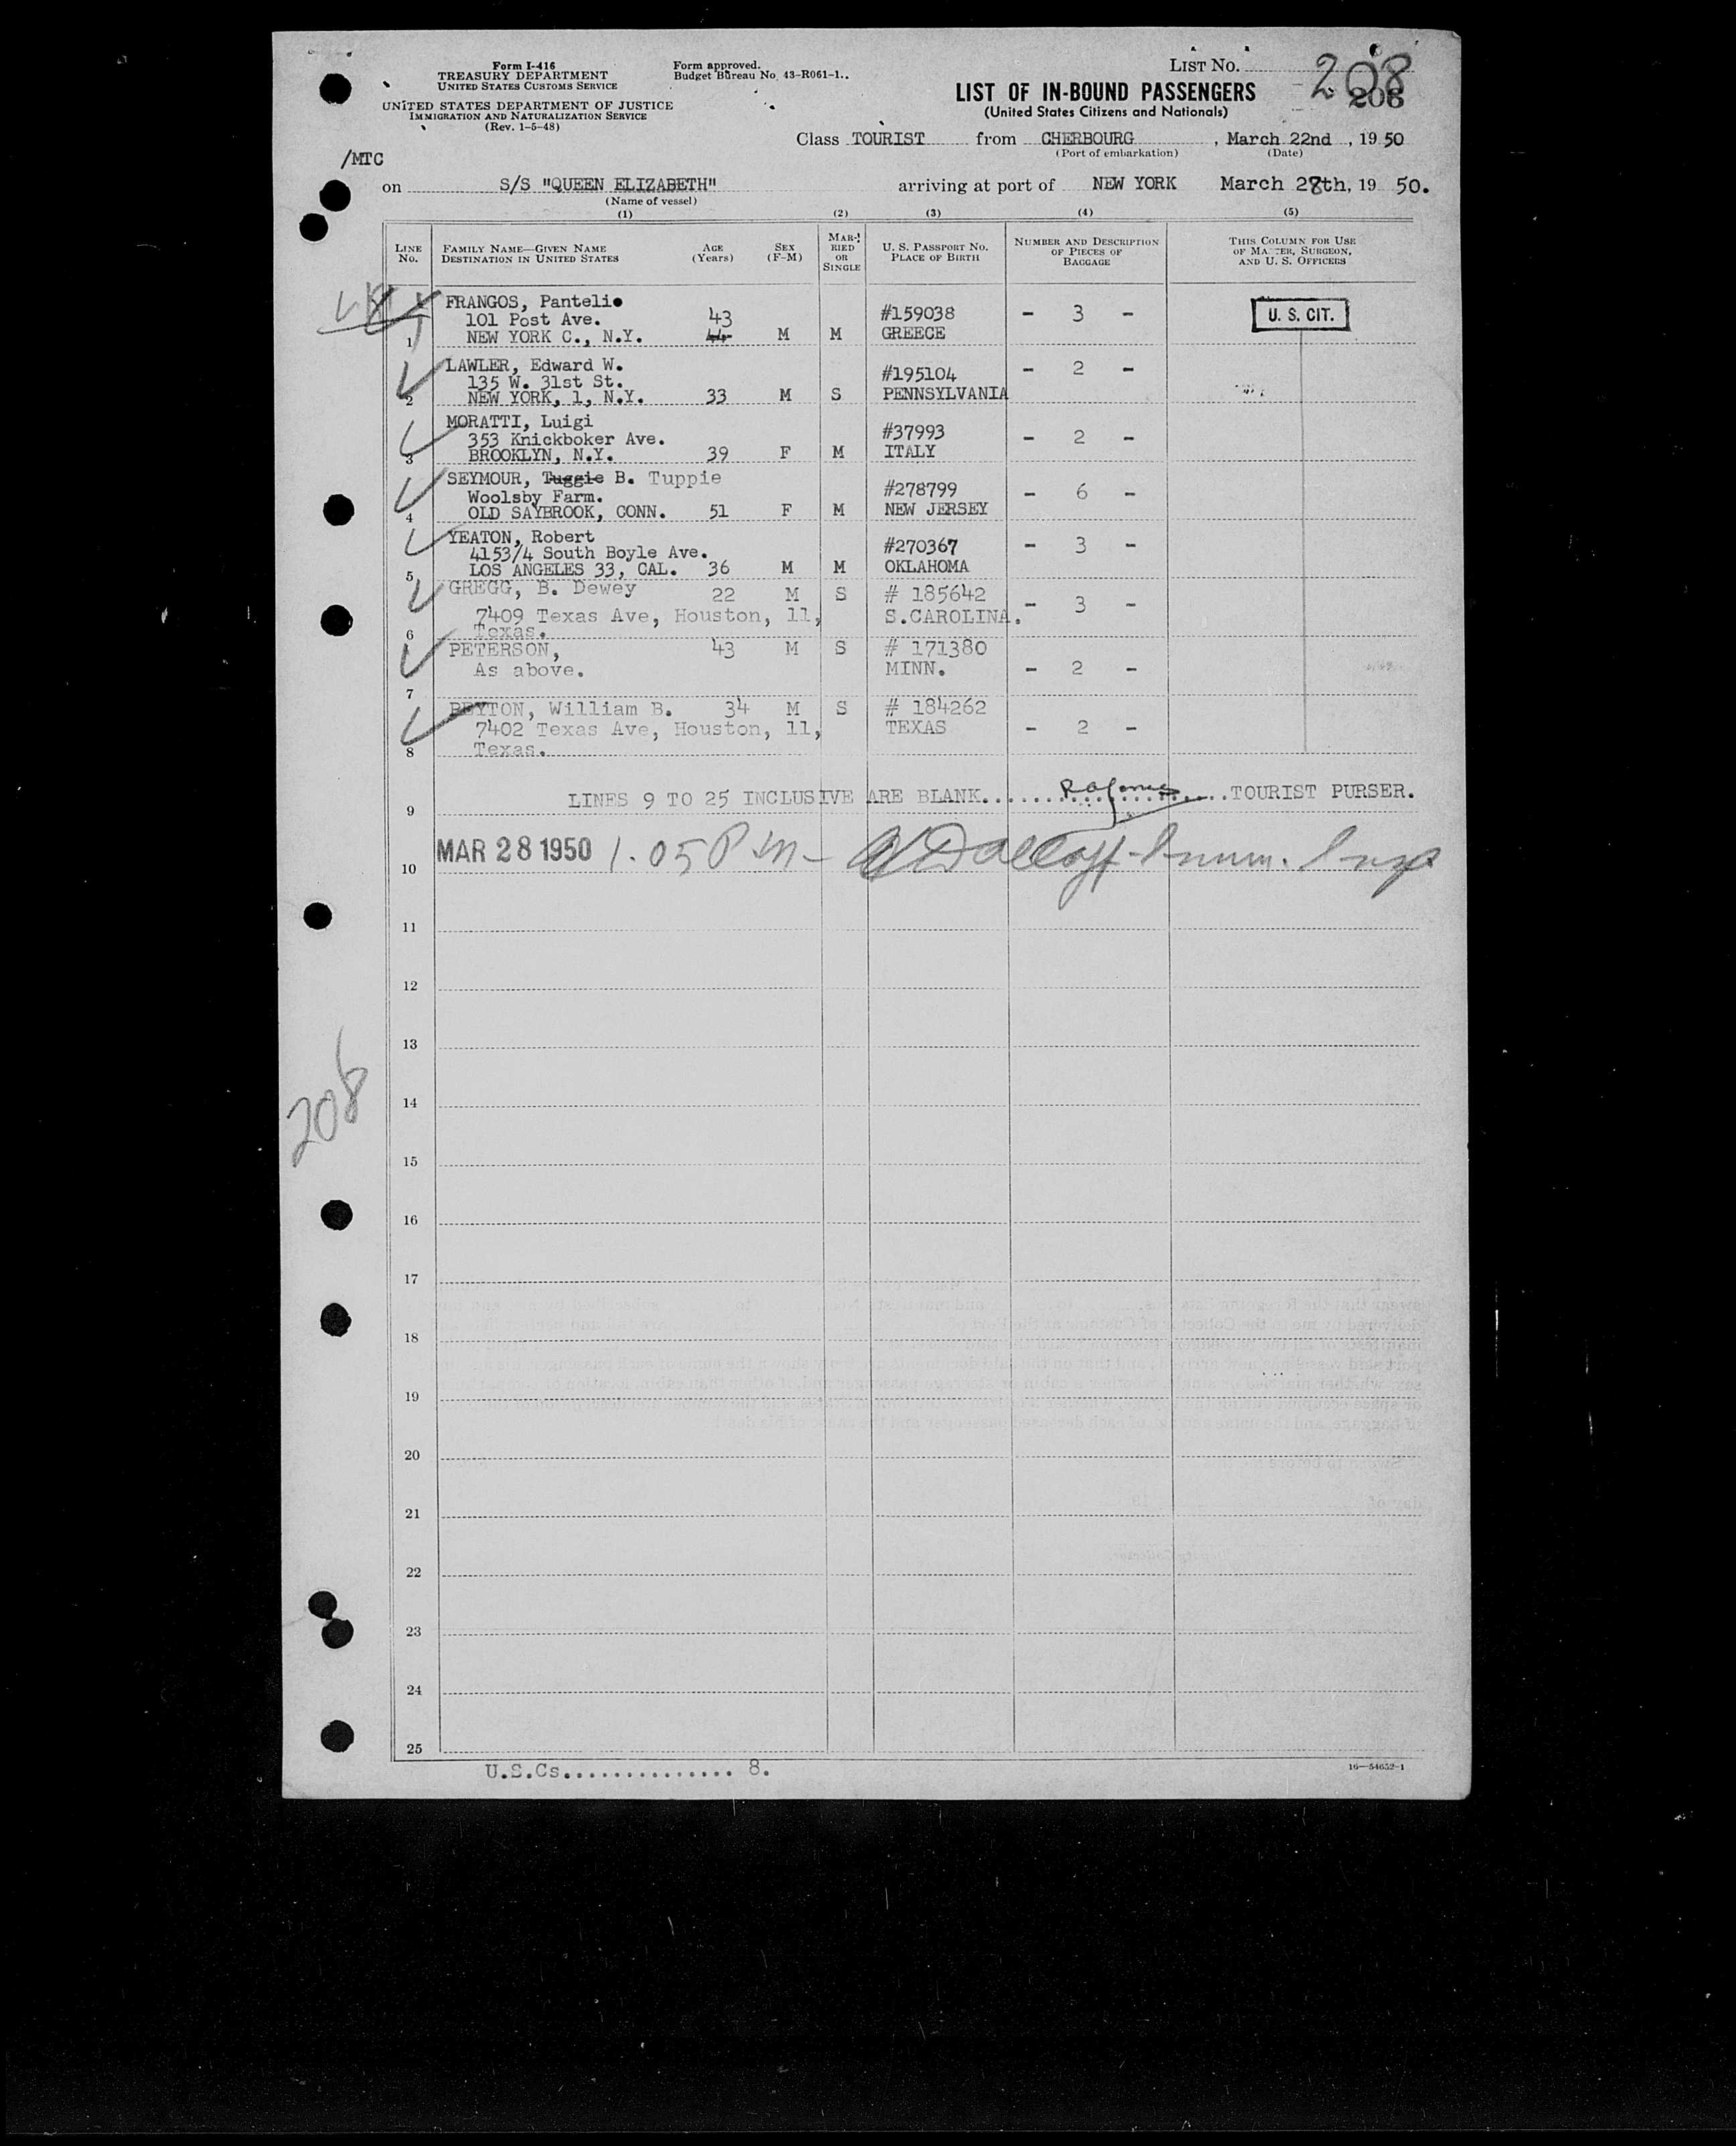 Form I-416
TREASURY DEPARTMENT
UNITED STATES CUSTOMS SERVICE
UNITED STATES DEPARTMENT OF JUSTICE
IMMIGRATION AND NATURALIZATION SERVICE
(Rev. 1-5-48)
Form approved.
Budget Bureau No. 43-R061-1..
LIST NO. 208
LIST OF IN-BOUND PASSENGERS
(United States Citizens and Nationals)
Class TOURIST from CHERBOURG, March 22nd, 19 50
(Port of embarkation) (Date)
/MTC
on S/S "QUEEN ELIZABETH" arriving at port of NEW YORK March 28th, 19 50.
(Name of vessel)
(1) (2) (3) (4) (5)
LINE NO. FAMILY NAME—GIVEN NAME DESTINATION IN UNITED STATES AGE (Years) SEX (F-M) MARRIED OR SINGLE U. S. PASSPORT NO. PLACE OF BIRTH NUMBER AND DESCRIPTION OF PIECES OF BAGGAGE THIS COLUMN FOR USE OF MASTER, SURGEON, AND U. S. OFFICERS
FRANGOS, Pantelie #159038 - 3 - U. S. CIT.
101 Post Ave. 43
1 NEW YORK C., N.Y. 44 M M GREECE
LAWLER, Edward W. #195104 - 2 -
135 W. 31st St.
2 NEW YORK, 1, N.Y. 33 M S PENNSYLVANIA
MORATTI, Luigi #37993 - 2 -
353 Knickboker Ave.
3 BROOKLYN, N.Y. 39 F M ITALY
SEYMOUR, Tuggie B. Tuppie #278799 - 6 -
Woolsby Farm.
4 OLD SAYBROOK, CONN. 51 F M NEW JERSEY
YEATON, Robert #270367 - 3 -
4153/4 South Boyle Ave.
5 LOS ANGELES 33, CAL. 36 M M OKLAHOMA
GREGG, B. Dewey 22 M S # 185642 - 3 -
7409 Texas Ave, Houston, 11, S.CAROLINA.
6 Texas.
PETERSON, 43 M S # 171380
As above. MINN. - 2 -
7
BEYTON, William B. 34 M S # 184262
7402 Texas Ave, Houston, 11, TEXAS - 2 -
8 Texas.
9 LINES 9 TO 25 INCLUSIVE ARE BLANK.......................TOURIST PURSER.
10 MAR 28 1950 1.05 Pm-
11
12
13
14
208
15
16
17
18
19
20
21
22
23
24
25
U.S.Cs............... 8.
16—54652-1